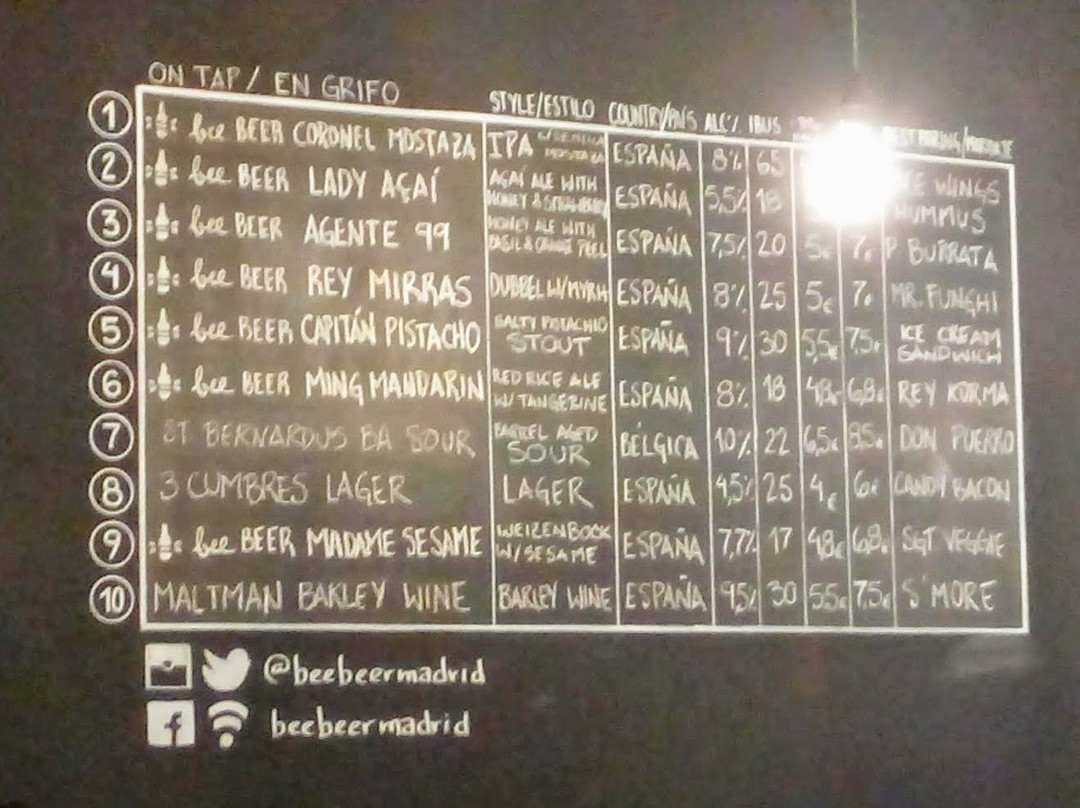 ON TAP / EN GRIFO STYLE/ESTILO COUNTRY/PAÍS ALC% IBUS
1 bee BEER CORONEL MOSTAZA IPA ESPAÑA 8% 65
2 bee BEER LADY AÇAÍ AÇAÍ ALE WITH HONEY & STRAWBERRY ESPAÑA 5,5% 18 WINGS HUMMUS
3 bee BEER AGENTE 99 HONEY ALE WITH BASIL & ORANGE PEEL ESPAÑA 7,5% 20 5€ P BURRATA
4 bee BEER REY MIRRAS DUBBEL W/MYRH ESPAÑA 8% 25 5€ 7€ MR. FUNGHI
5 bee BEER CAPITÁN PISTACHO SALTY PISTACHIO STOUT ESPAÑA 9% 30 5,5€ 7,5€ ICE CREAM SANDWICH
6 bee BEER MING MANDARIN RED RICE ALE W/TANGERINE ESPAÑA 8% 18 4,8€ 6,8€ REY KORMA
7 ST BERNARDUS BA SOUR BARREL AGED SOUR BÉLGICA 10% 22 6,5€ 8,5€ DON PUERRO
8 3 CUMBRES LAGER LAGER ESPAÑA 4,5% 25 4€ 6€ CANDY BACON
9 bee BEER MADAME SESAME WEIZENBOCK W/SESAME ESPAÑA 7,7% 17 4,8€ 6,8€ SGT VEGGIE
10 MALTMAN BARLEY WINE BARLEY WINE ESPAÑA 9,5% 30 5,5€ 7,5€ S'MORE
@beebeermadrid
f beebeermadrid